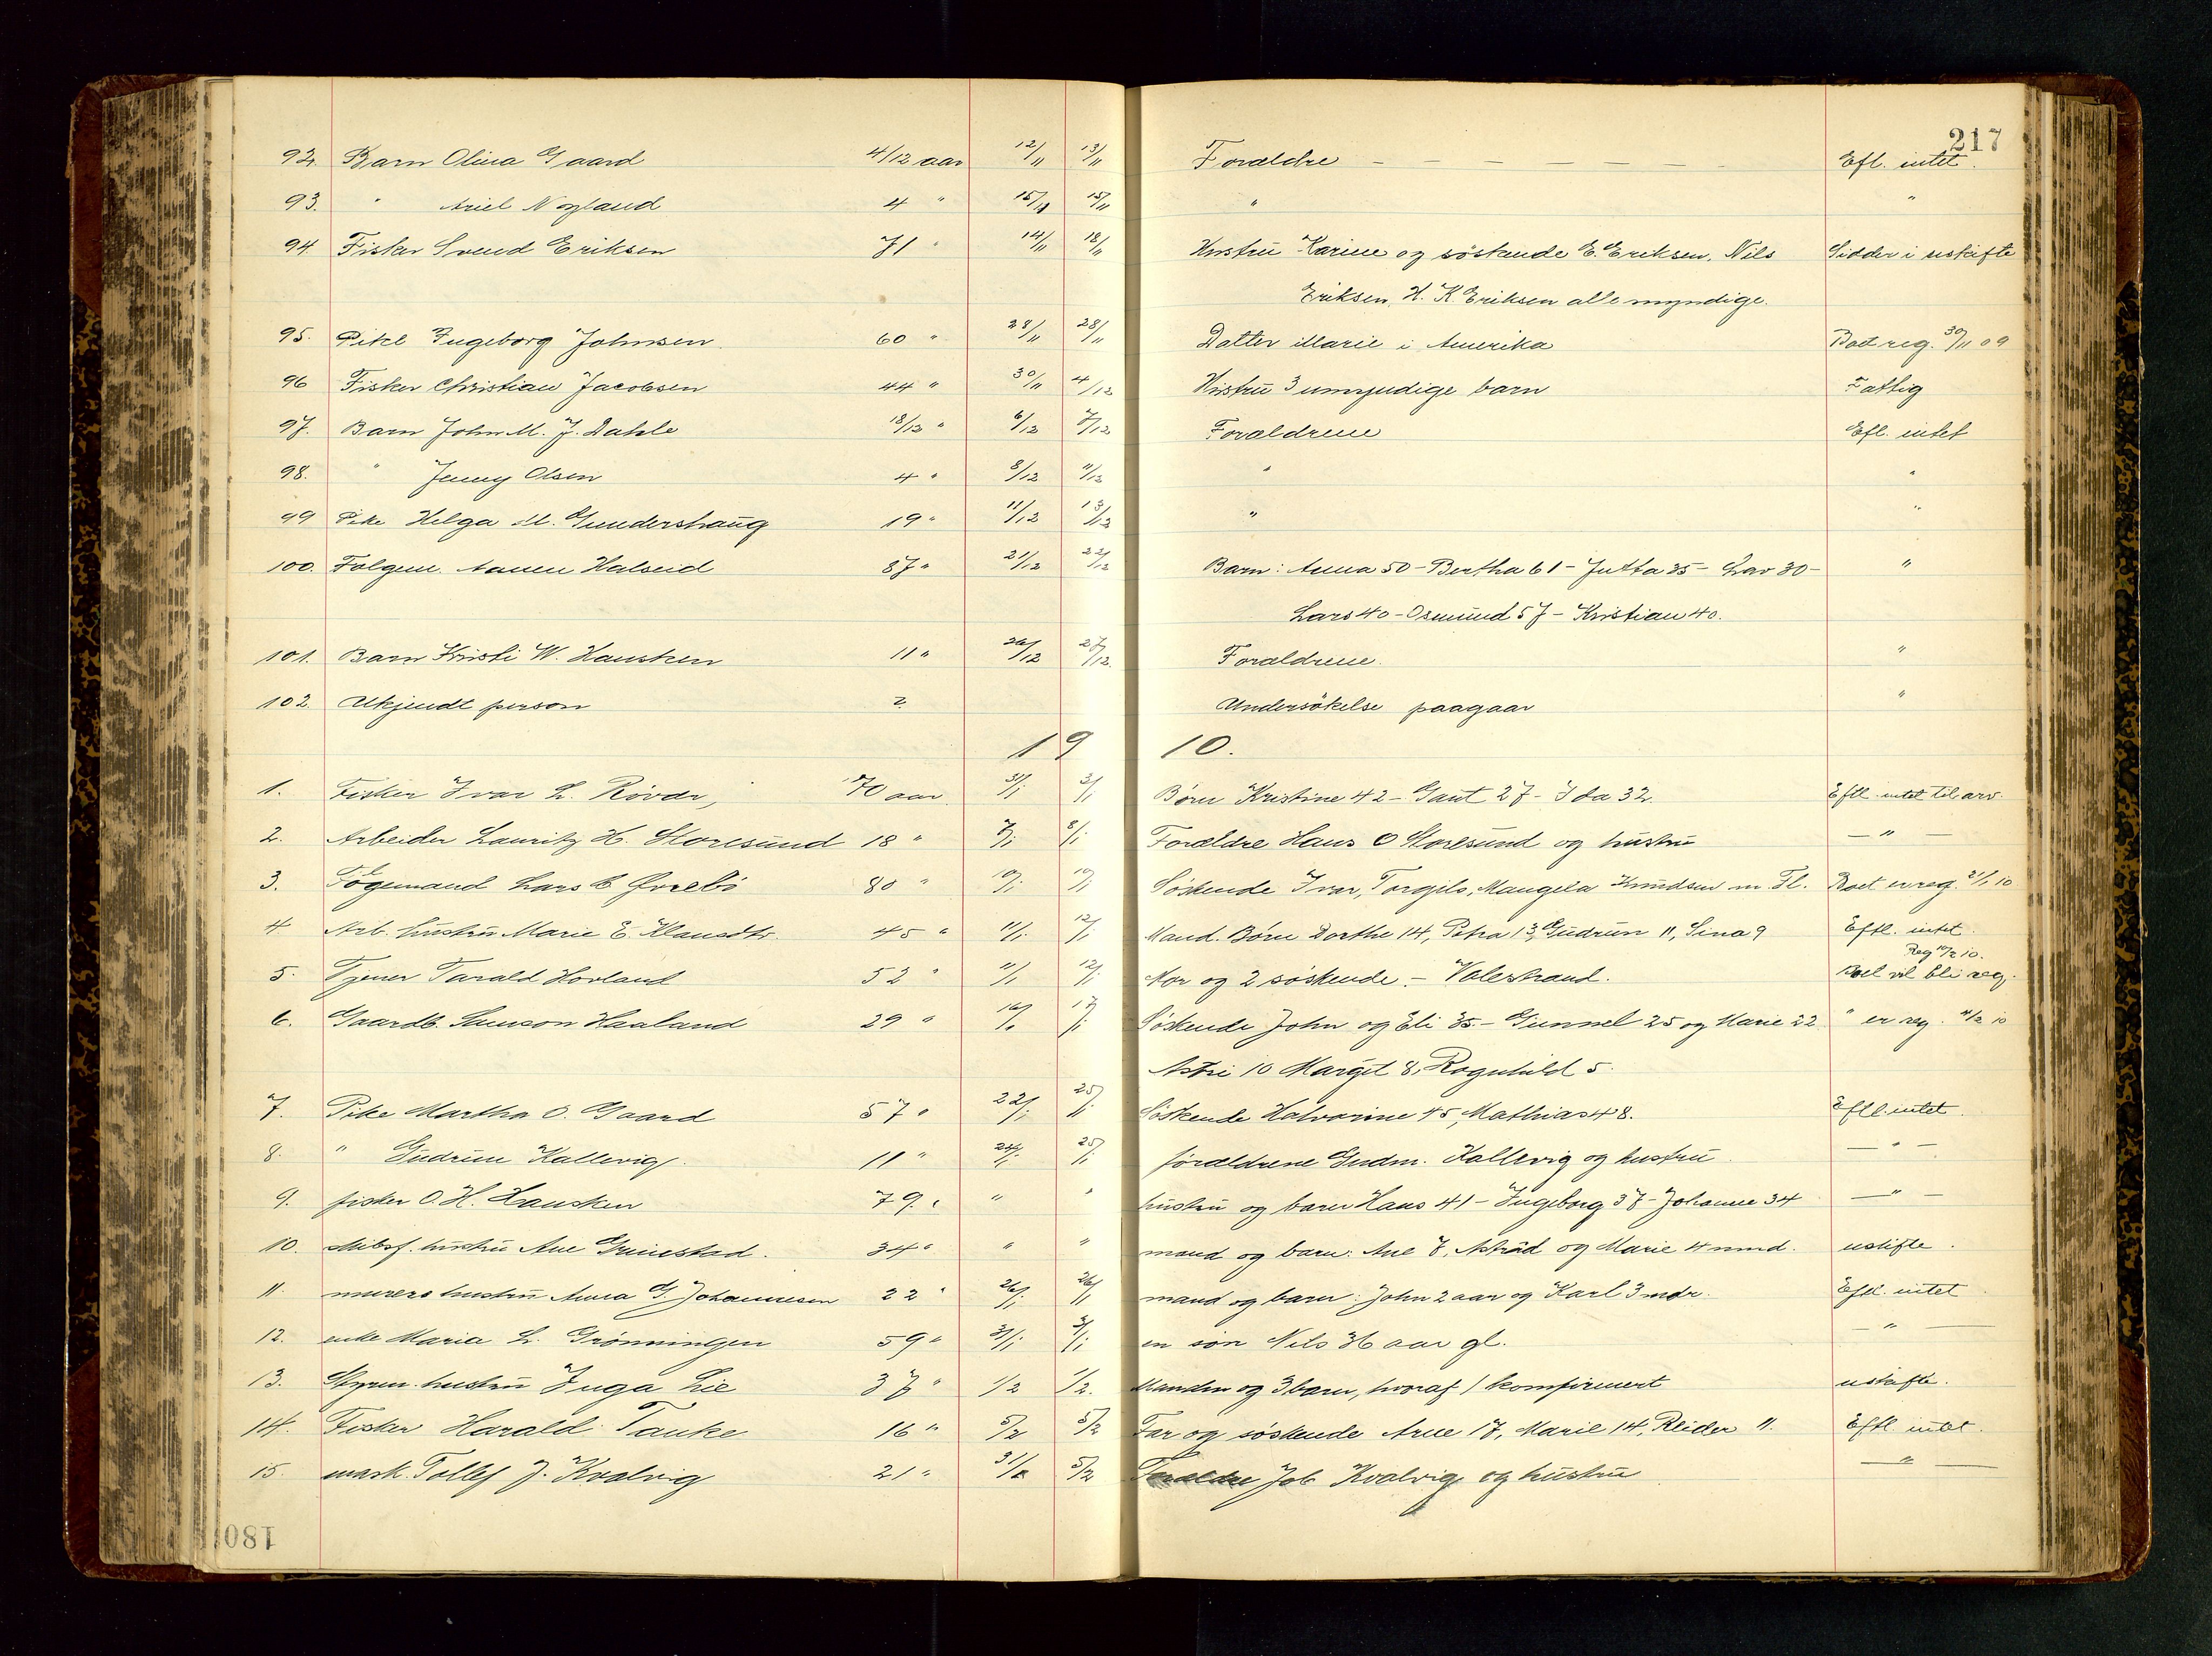 217
92. Barn Olina Gaard 4/12 aar 12/11 13/11 Forældre — — — — — — Efl. intet.
93. " Ariel Nygland 4 " 15/11 15/11 " "
94. Fisker Svend Eriksen 71 " 14/11 18/11 Hustru Karine og söskende E. Eriksen, Nils Sidder i uskifte
Eriksen, H. K. Eriksen alle myndige.
95. Pike Ingeborg Johnsen. 60 " 28/11 28/11 Datter Marie i Amerika Boet reg. 30/11 09
96 Fisker Christian Jacobsen 44 " 30/11 4/12 Hustru 3 umyndige barn Fattig
97. Barn John M. J. Dahle 18/12 " 6/12 7/12 Forældrene Efl. intet
98. " Jenny Olsen 4 " 8/12 11/12 " "
99 Pike Helga M. Gundershaug 19 " 11/12 13/12 " "
100. Folgem. Aanen Halseid 87 " 21/12 22/12 Barn: Anna 50 - Bertha 61 - Jutta 35 - Lav 30 - "
Lars 40 - Osmund 57 - Kristian 40.
101. Barn Kristi W. Hausken 11 " 26/12 27/12. Forældrene. "
102. Ukjendt person ? Undersökelse paagaar "
19 10.
1. Fisker Ivar L. Røvær, 70 aar 31/1 3/1 Børn Kristine 42 - Gaut 27 - Ida 32. Eftl. intet til arv.
2. Arbeider Lauritz H. Storesund 18 " 7/1 8/1 Forældre Hans O Storesund og hustru — " —
3. Føgemand Lars B Øvrebö 80 " 10/1 10/1 Söskende Ivar, Torgils, Mangela Knudsen m. Fl. Boet er reg. 21/1 10
4 Arb. hustru Marie E. Klausdtr. 45 " 11/1 12/1 Mand. Børn Dorthe 14, Petra 13, Gudrun 11, Sina 9 Eftl. intet.
Reg 10/2 10.
5. Tjener Tarald Hovland 52 " 11/1 12/1 Mor og 2 söskende. - Valestrand. Boet vil bli reg.
6. Gaardb. Samson Haaland 29 " 16/1 17/1 Söskende John og Eli 35. - Gunnel 25 og Marie 22 " er reg. 11/2 10
Astri 10 Marget 8, Ragnhild 5.
7. Pike Martha O. Gaard 57 " 22/1 25/1 Söskende Halvarine 45, Mathias 48. Eftl. intet.
8. " Gudrun Kallevig. 11 " 24/1 25/1 forældrene Gudm. Kallevig og hustru. — " —
9. fisker O. H. Hausken 79. " " " hustru og barn Hans 41 - Ingeborg 37 - Johanne 34 — " —
10. Skibsf. hustru Ane Grinestad. 34 " " " mand og barn: Ane 7, Astrid og Marie 4 mnd. uskifte.
11. murers hustru Anna G. Johannesen 22 " 26/1 26/1 mand og barn: John 2 aar og Karl 3 mdr. Eftl. intet
12. enke Maria L. Grönningen 59 " 31/1 3/1 en søn Nils 36 aar gl. — " —
13. Styrm. hustru Inga Lie 37 " 1/2 1/2. Manden og 3 barn, hvoraf 1 konfirmert uskifte.
14. Fisker Harald Tanke 16 " 5/2 5/2 Far og söskende Arne 17, Marie 14, Reidar 11. Eftl. intet.
15. mask. Tollef J. Kvalvig 21 " 31/1 5/2 Forældre Job Kvalvig og hustru — " —
180